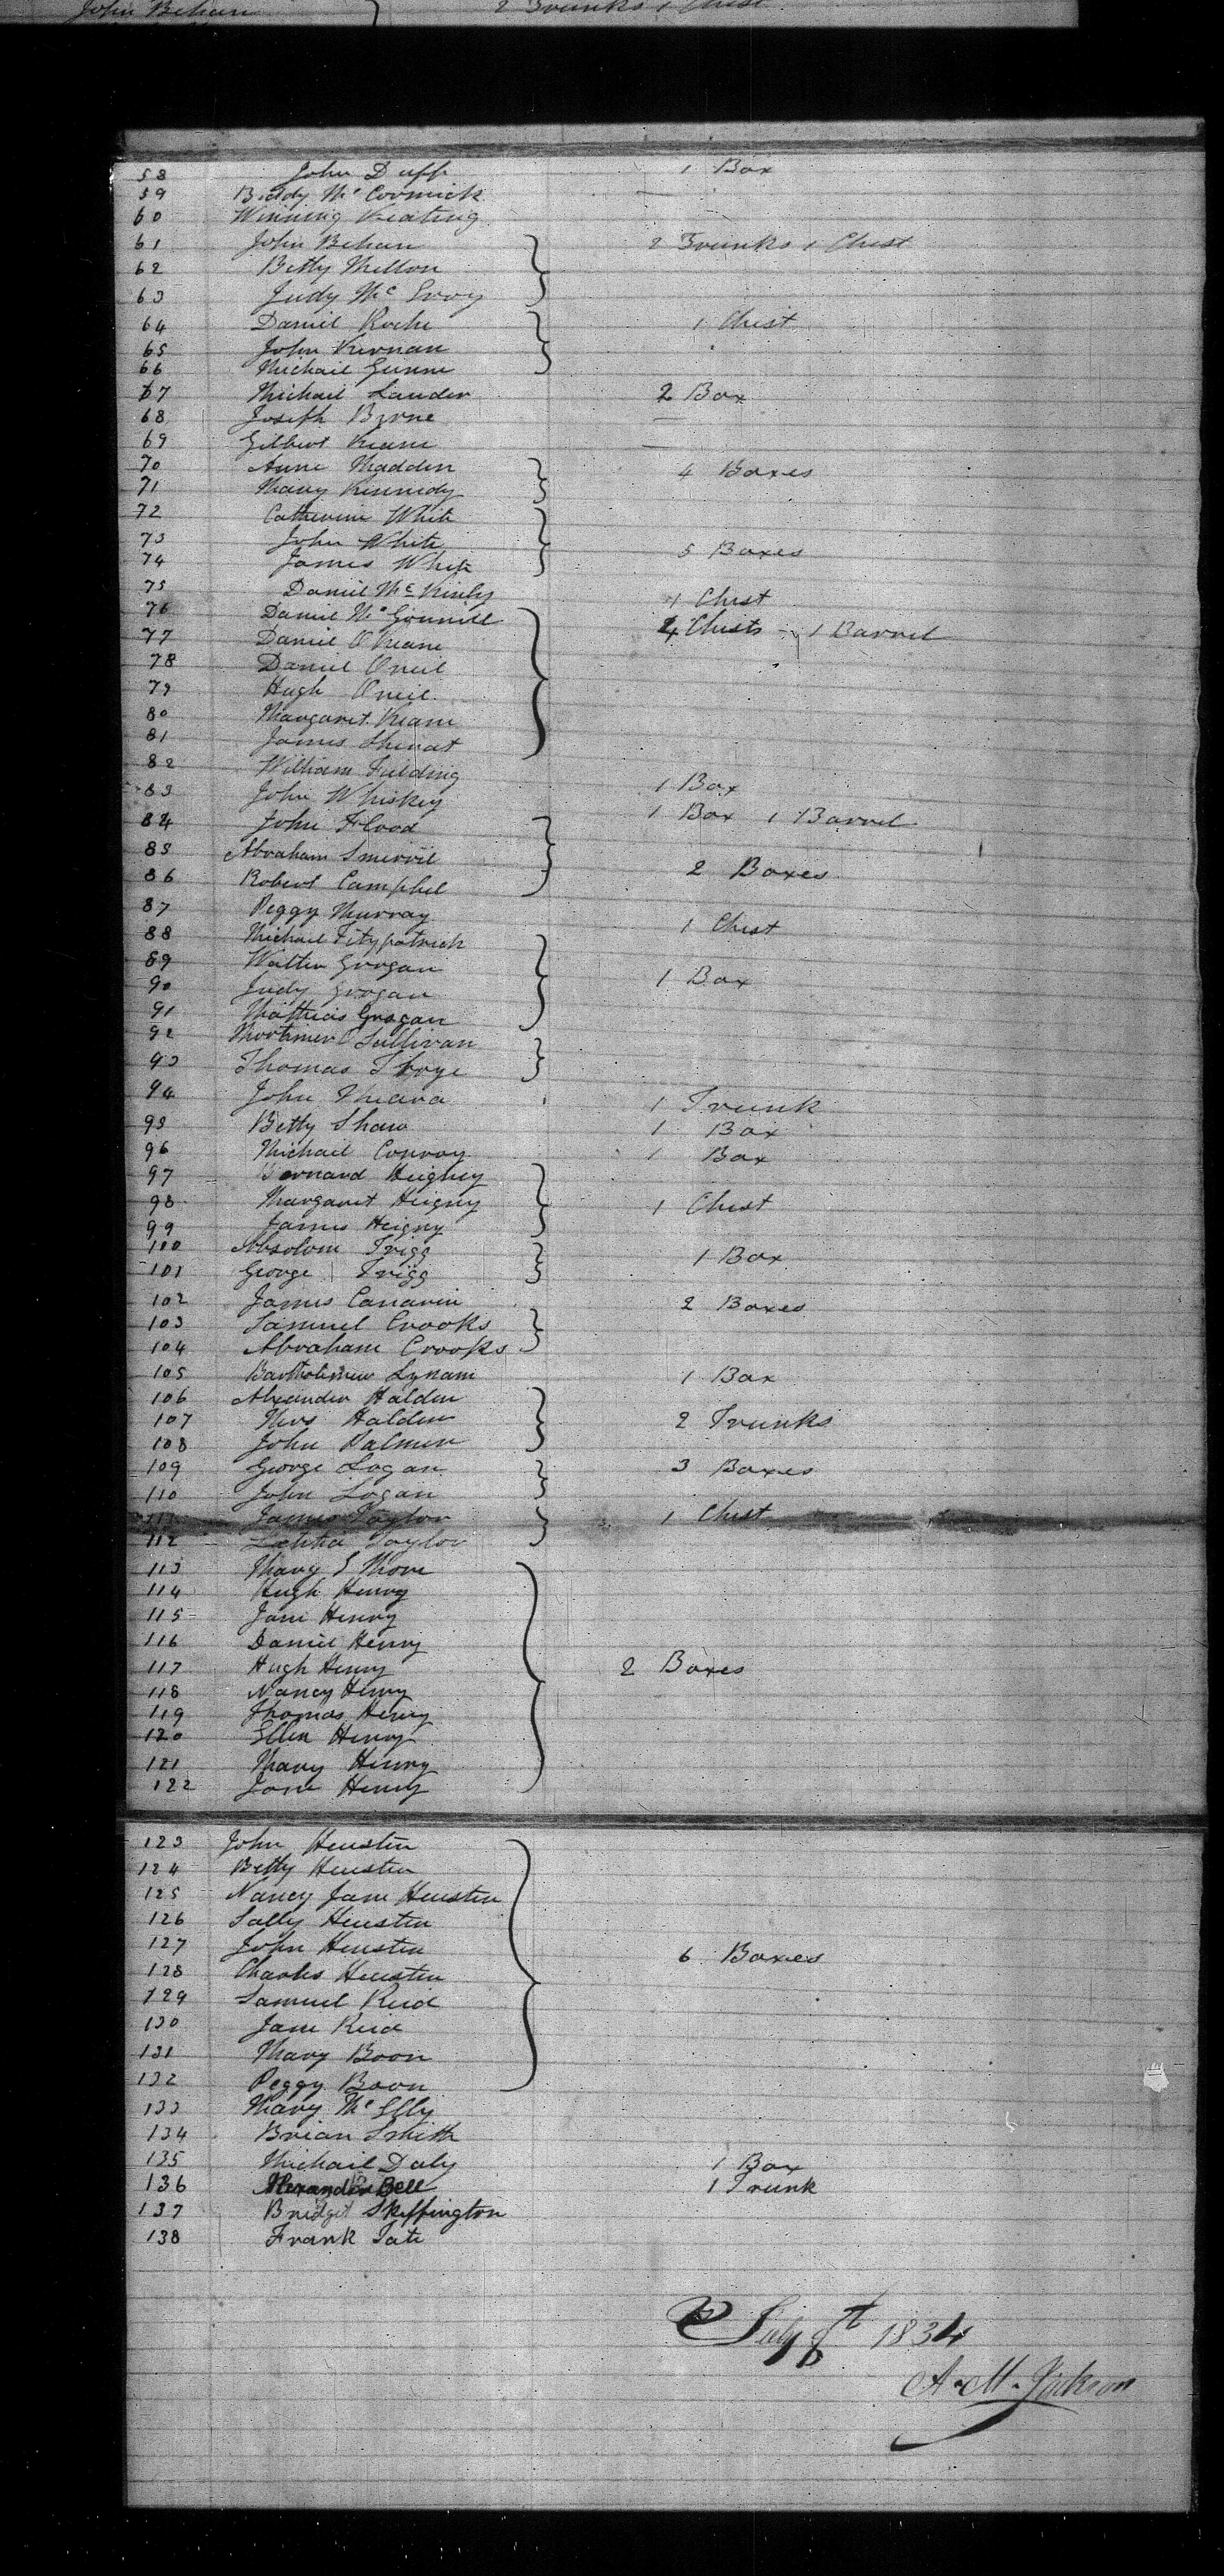 John Behan 2 Trunks 1 Chest
58 John Duff 1 Box
59 Biddy Mc Cormick —
60 Winning Keating
61 John Behan 2 Trunks 1 Chest
62 Betty Mellon
63 Judy Mc Evoy
64 Daniel Roche 1 Chest
65 John Kernan
66 Michail Gunn
67 Michail Lauder 2 Box
68 Joseph Byrne —
69 Gilbert Keane —
70 Anne Madden 4 Boxes
71 Mary Kennedy
72 Catherine White
73 John White 5 Boxes
74 James White
75 Daniel Mc Kinly 1 Chest
76 Daniel Mc Gonnill 4 Chists 1 Barrel
77 Daniel O Keane
78 Daniel Oneil
79 Hugh Oneil
80 Margaret Keane
81 James
82 William Fielding
83 John Whiskey 1 Box
84 John Flood 1 Box 1 Barrel
85 Abraham
86 Robert Camphel 2 Boxes
87 Peggy Murray
88 Michael Fitzpatrick 1 Chest
89 Walter Grogan
90 Judy Grogan 1 Box
91 Mathias Grogan
92 Mortimer O Sullivan
93 Thomas
94 John Meara 1 Trunk
95 Betty Shaw 1 Box
96 Michail Conroy 1 Box
97 Bernard Heighey
98 Margaret Heigny 1 Chest
99 James Heigny
100 Absolom Trigg
101 George Trigg 1 Box
102 James Canavin 2 Boxes
103 Samuel Crooks
104 Abraham Crooks
105 Bartholimew Lynam 1 Box
106 Alexander Halden
107 Mrs Halden 2 Trunks
108 John Palmer
109 George Logan 3 Boxes
110 John Logan
111 James Taylor 1 Chest
112 Letitia Taylor
113 Mary S Moore
114 Hugh Henry
115 Jane Henry
116 Daniel Henry
117 Hugh Henry 2 Boxes
118 Nancy Henry
119 Thomas Henry
120 Ellen Henry
121 Mary Henry
122 Jane Henry
123 John Heustin
124 Betty Heustin
125 Nancy Jane Heustin
126 Sally Heustin
127 John Heustin 6 Boxes
128 Charles Heustin
129 Samuel Reid
130 Jane Reid
131 Mary Boon
132 Peggy Boon
133 Mary Mc Elly
134 Brian Smith
135 Michail Daly 1 Box
136 Alexander Bell 1 Trunk
137 Bridget Skeffington
138 Frank Tate
July 9t 1834
A. M. Jackson